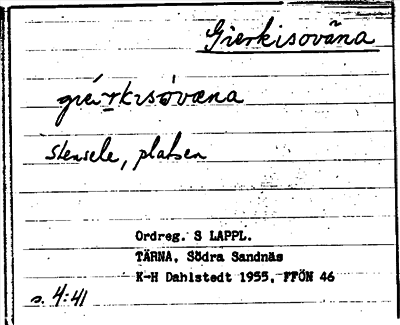 Gierkisoväna
giérkisòvæna
Stensele, platsen
Ordreg. S LAPPL.
TÄRNA, Södra Sandnäs
K-H Dahlstedt 1955, FFÖN 46
s. 4:41